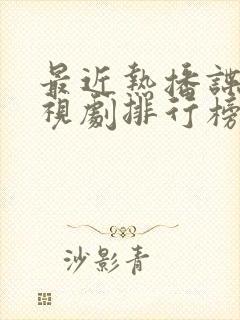 最近熱播諜
視劇排行榜
沙影青